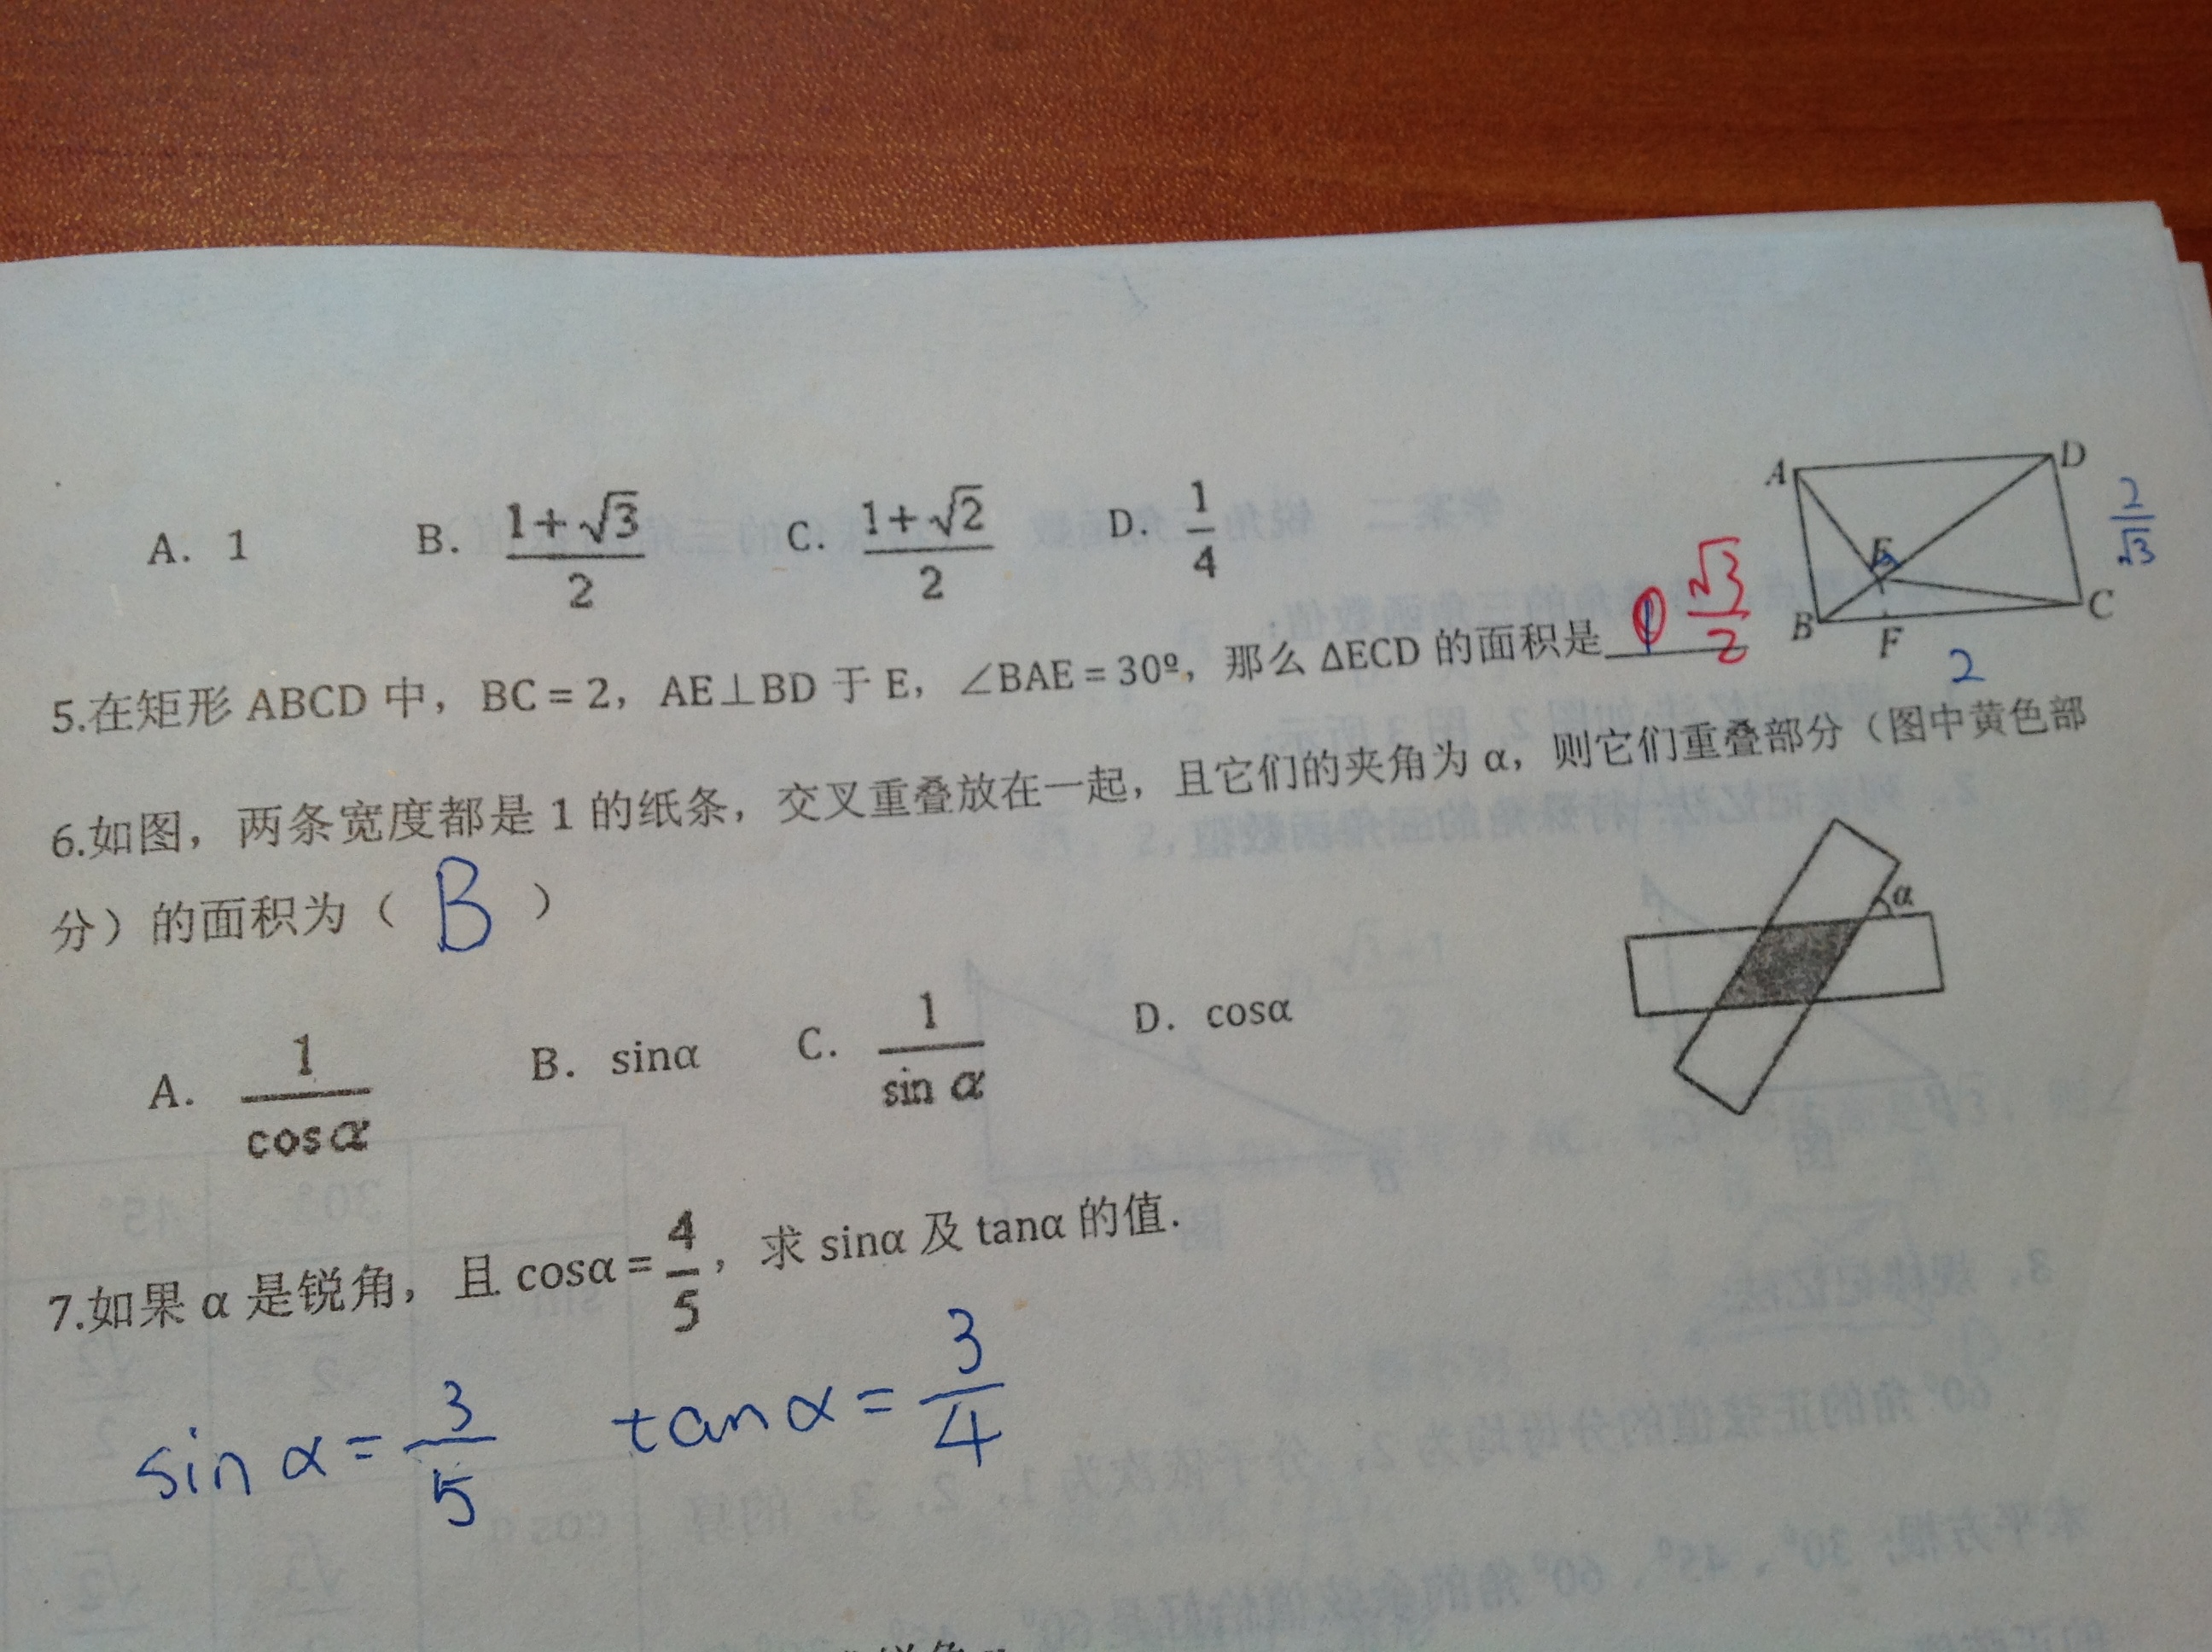 A. 1 B. (1+√3)/2 C. (1+√2)/2 D. 1/4
A D
E
B F C
2/√3
2
5.在矩形 ABCD 中，BC=2，AE⊥BD 于 E，∠BAE=30º，那么 ΔECD 的面积是 √3/2
6.如图，两条宽度都是 1 的纸条，交叉重叠放在一起，且它们的夹角为 α，则它们重叠部分（图中黄色部
分）的面积为（ B ）
α
A. 1/cosα B. sinα C. 1/sin α D. cosα
7.如果 α 是锐角，且 cosα=4/5，求 sinα 及 tanα 的值.
sin α=3/5 tan α=3/4